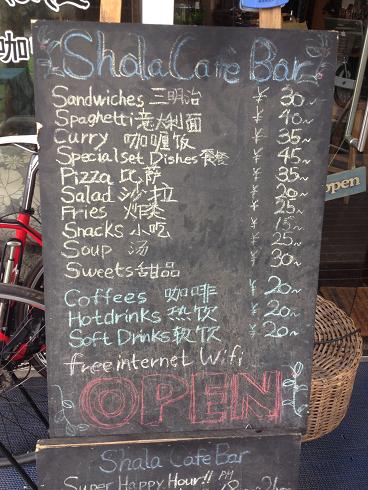 Shala Cafe Bar
Sandwiches 三明治 ¥ 30~
Spaghetti 意大利面 ¥ 40~
Curry 咖喱饭 ¥ 35~
Special set Dishes 套餐 ¥ 45~
Pizza 比萨 ¥ 35~
Salad 沙拉 ¥ 20~
Fries 炸类 ¥ 25~
Snacks 小吃 ¥ 15~
Soup 汤 ¥ 25~
Sweets 甜品 ¥ 30~
Coffees 咖啡 ¥ 20~
Hotdrinks 热饮 ¥ 20~
Soft Drinks 软饮 ¥ 20~
free internet Wifi
OPEN
Shala Cafe Bar
Super Happy Hour!! PM
open
咖